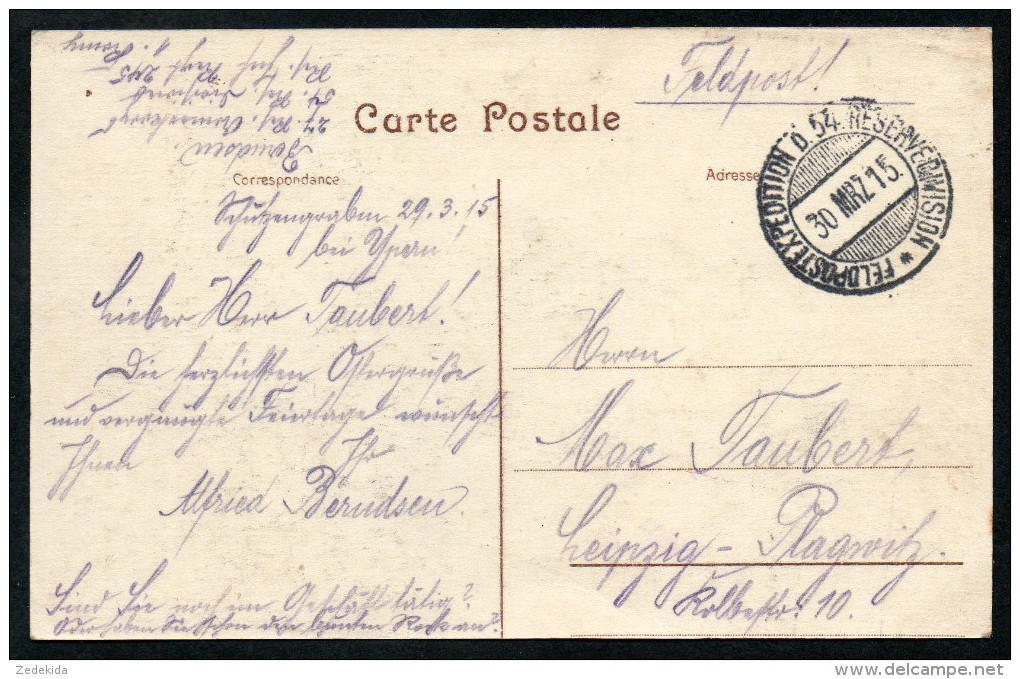 Feldpost!
Carte Postale
Correspondance
Adresse
FELDPOSTEXPEDITION D. 54. RESERVEDIVISION *
30 MRZ 15.
Berndsen.
27. Res. Armeekorps
54. Res. Division
Res. Inf. Regt 245
Schützengraben 29.3.15
bei Ypern!
Lieber Herr Taubert!
Die herzlichsten Ostergrüße
und vergnügte Feiertage wünscht
Ihnen Ihr
Alfried Berndsen.
Sind Sie noch im Geschäft tätig?
Oder haben Sie schon den bunten Rock an?
Herrn
Max Taubert,
Leipzig – Plagwitz.
Kolbestr. 10.
Zedekida
delcampe.net